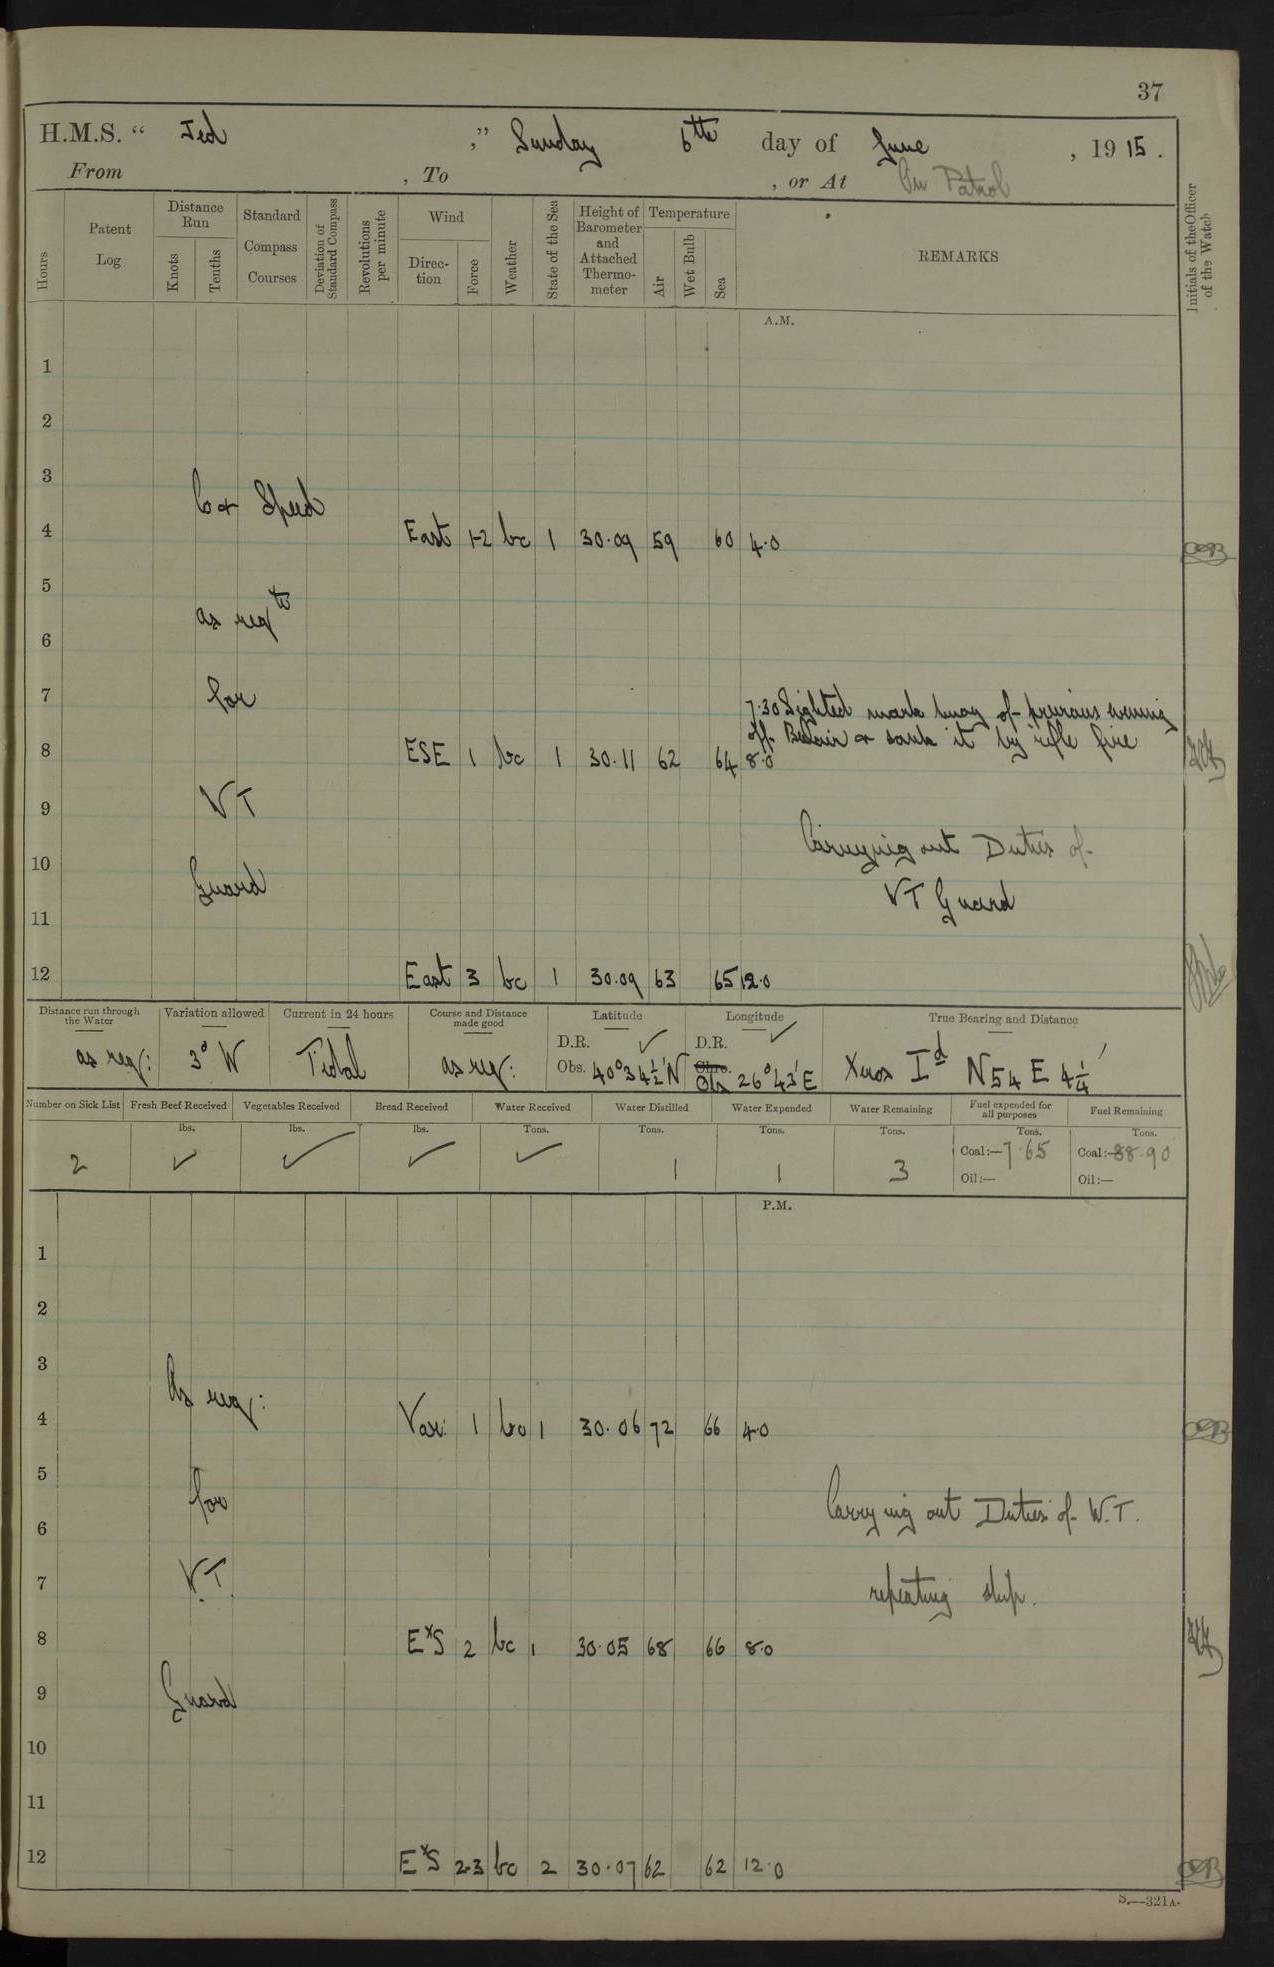 37
H.M.S. “ Jed ,” Sunday 6th day of June , 1915.
From , To , or At On Patrol
Hours
Patent Log
Distance Run
Knots
Tenths
Standard Compass Courses
Deviation of Standard Compass
Revolutions per minute
Wind
Direc-tion
Force
Weather
State of the Sea
Height of Barometer and Attached Thermo-meter
Temperature
Air
Wet Bulb
Sea
REMARKS
Initials of the Officer of the Watch
A.M.
1
2
3
Co & Speed
4 East 1-2 bc 1 30.09 59 60 4.0
5
as reqte
6
7 for
7.30 Sighted mark buoy of previous evening
off Bulair & sank it by rifle fire
8 ESE 1 bc 1 30.11 62 64 8.0
9 VT
Carrying out Duties of
10 Guard
VT Guard
11
12 East 3 bc 1 30.09 63 65 12.0
Distance run through the Water
Variation allowed
Current in 24 hours
Course and Distance made good
Latitude
Longitude
True Bearing and Distance
D.R. ✓ D.R. ✓
as req: 3° W Tidal as req: Obs. 40°34½'N Chro. Obs 26°43'E Xeros Id N54E 4¼'
Number on Sick List
Fresh Beef Received
Vegetables Received
Bread Received
Water Received
Water Distilled
Water Expended
Water Remaining
Fuel expended for all purposes
Fuel Remaining
lbs. lbs. lbs. Tons. Tons. Tons. Tons. Tons. Tons.
2 ✓ ✓ ✓ ✓ 1 1 3 Coal:—7.65 Coal:—88.90
Oil:— Oil:—
P.M.
1
2
3
As req:
4 Var: 1 bc 1 30.06 72 66 4.0
5
for
Carrying out Duties of W.T.
6
7 V.T.
repeating ship.
8 ExS 2 bc 1 30.05 68 66 8.0
9 Guard
10
11
12 ExS 2.3 bc 2 30.07 62 62 12.0
S.—321A.